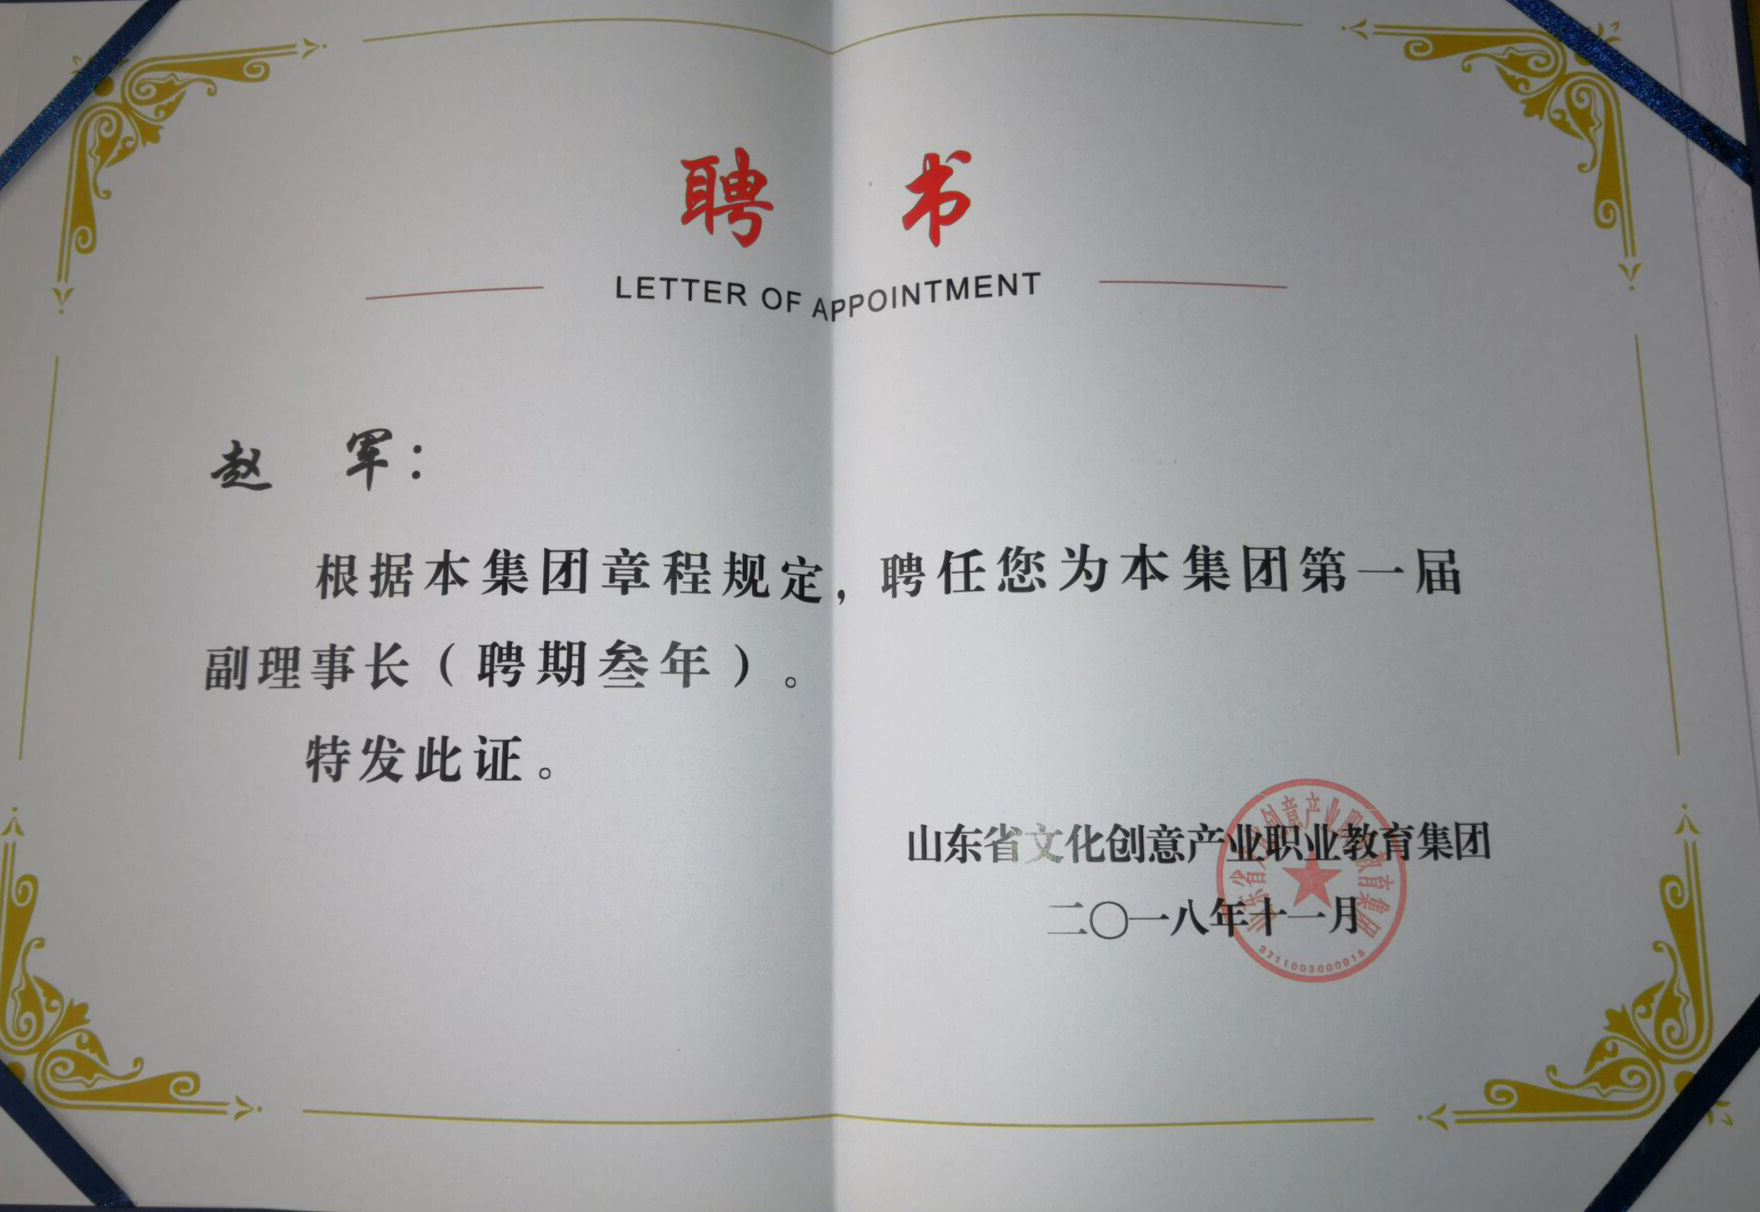 聘 书
LETTER OF APPOINTMENT
赵 军：
根据本集团章程规定，聘任您为本集团第一届
副理事长（聘期叁年）。
特发此证。
山东省文化创意产业职业教育集团
二〇一八年十一月
山东省文化创意产业职业教育集团